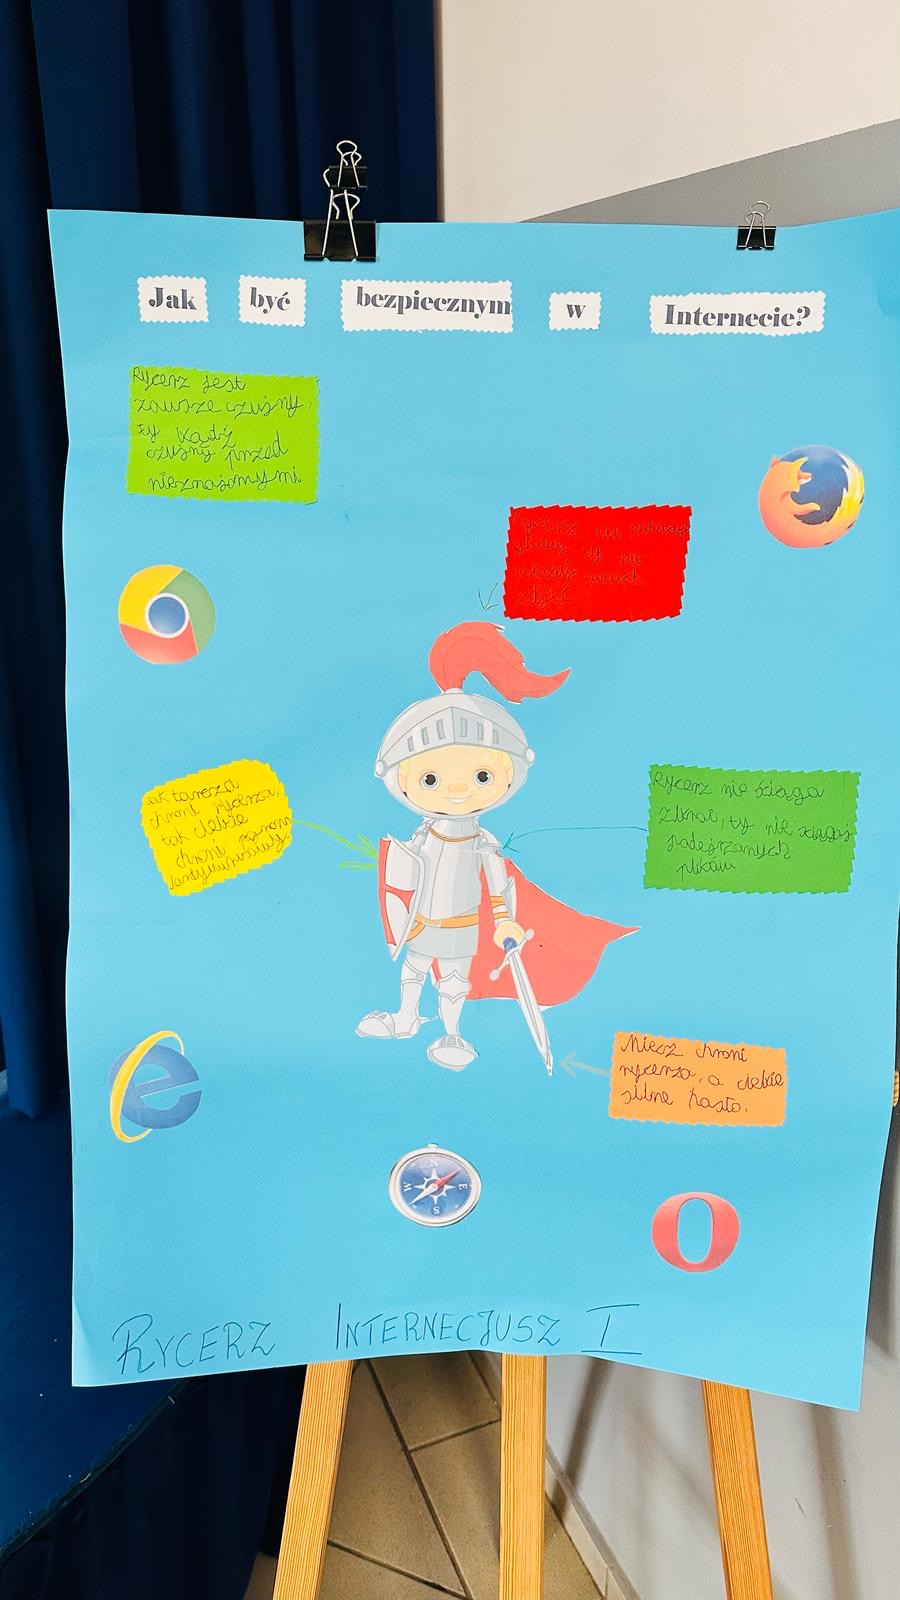 Jak być bezpiecznym w Internecie?
Rycerz jest
zawsze czujny,
ty bądź
czujny przed
nieznajomymi
Rycerz nie pokazuje
ty nie
pokazuj swoich
zdjęć
Jak tarcza
chroni rycerza,
tak ciebie
chroni program
antywirusowy
Rycerz nie ściąga
zbroi, ty nie ściągaj
podejrzanych
plików
Miecz chroni
rycerza, a ciebie
silne hasło.
RYCERZ INTERNECJUSZ I